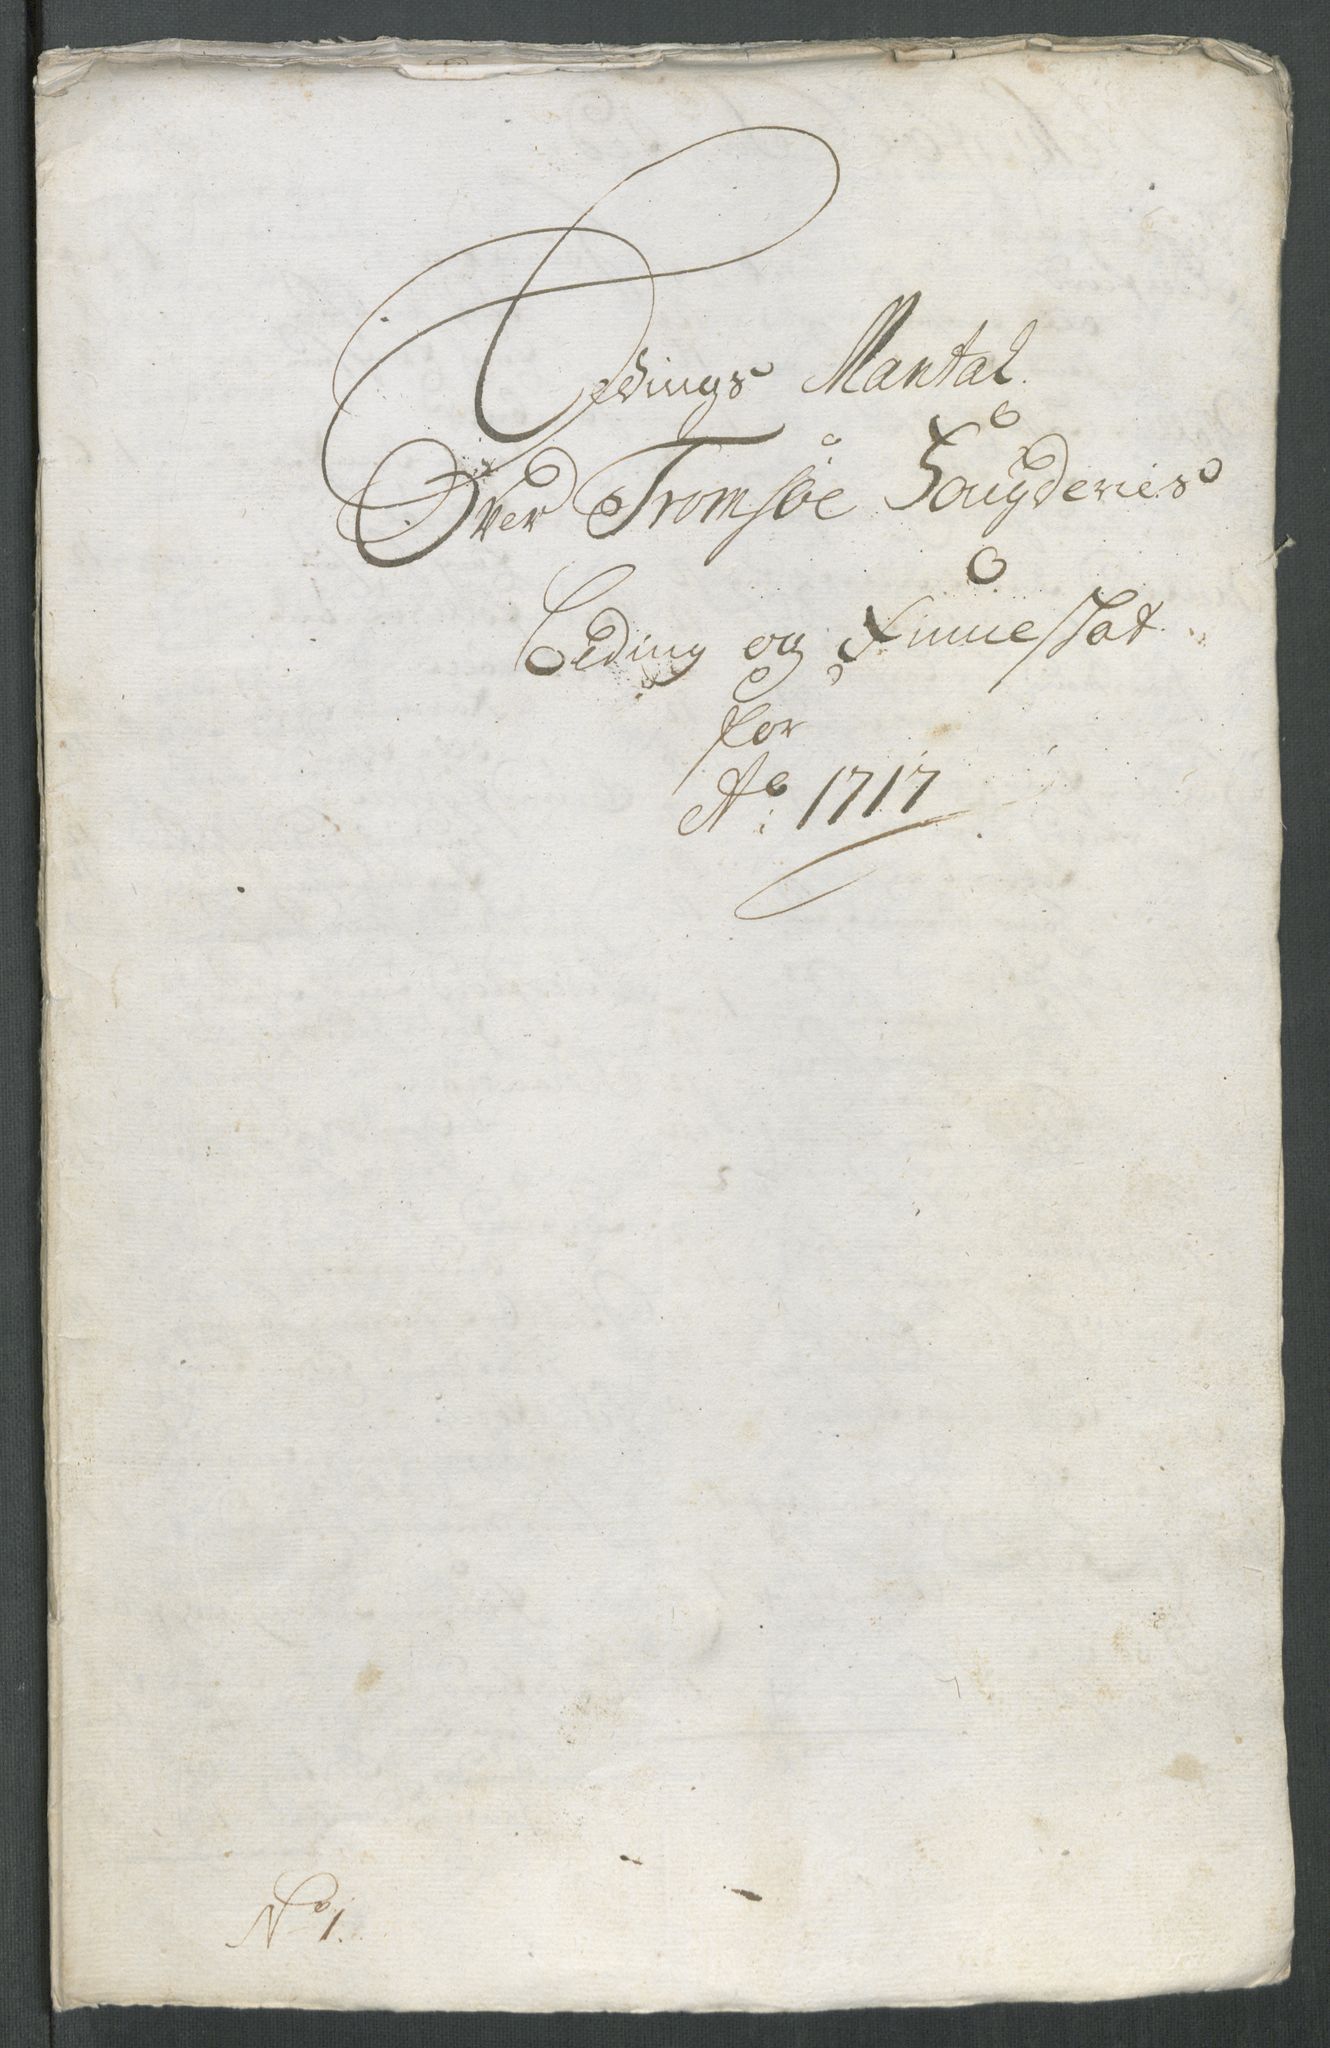 Tings Mantal
Over Tromsøe Fougderies
Leding og Finneskat
for
Ao: 1717
No 1.